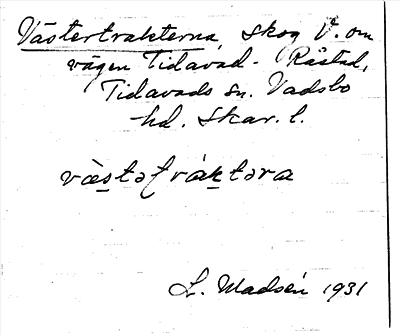 Västertrakterna, skog V. om
vägen Tidavad - Råstad,
Tidavads sn. Vadsbo
hd. Skar. l.
væ̀stəʃráktəra
L. Madsén 1931